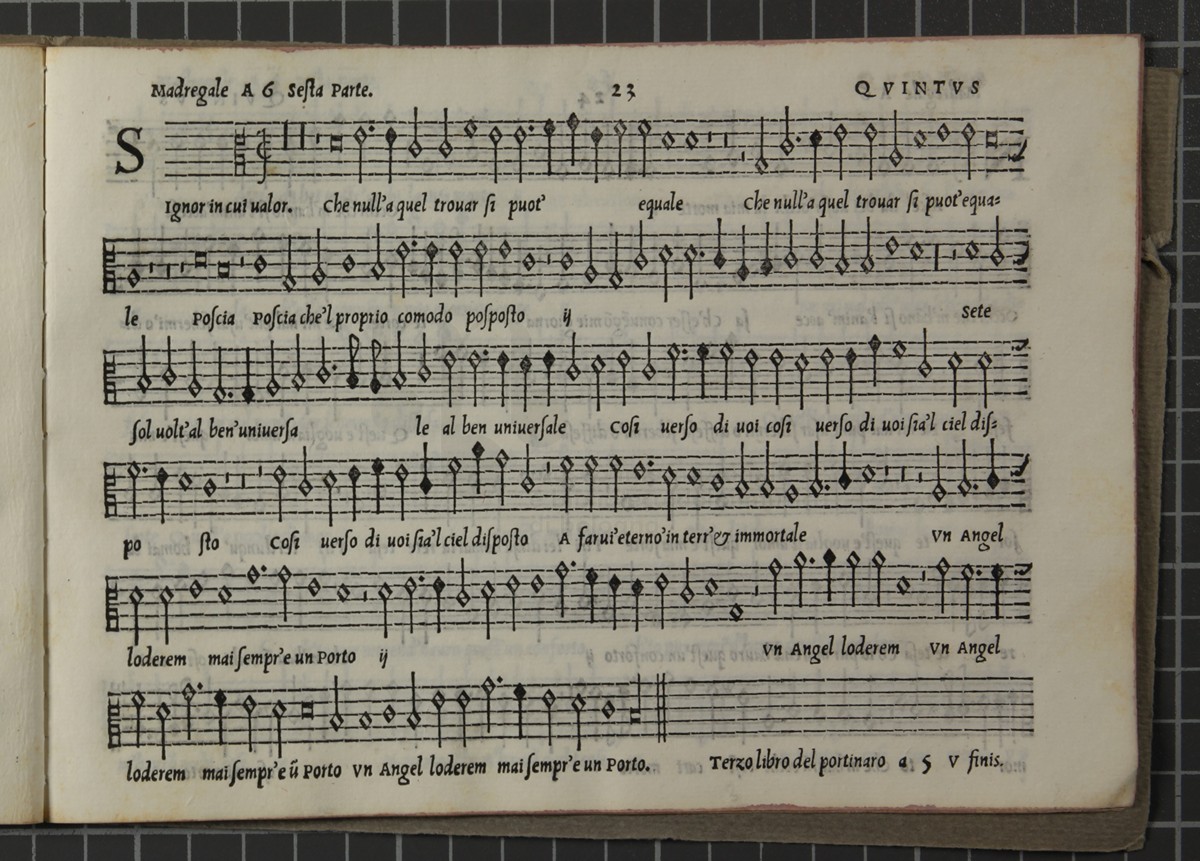 Madregale A 6 Sesta Parte. 23 QVINTVS
S
Ignor in cui ualor. Che null'a quel trouar si puot' equale Che null'a quel trouar si puot'equa=
le Poscia Poscia che'l proprio comodo posposto ij Sete
sol uolt'al ben'uniuersa le al ben uniuersale Cosi uerso di uoi cosi uerso di uoi sia'l ciel dis=
po sto Cosi uerso di uoi sia'l ciel disposto A farui'eterno'in terr'& immortale Vn Angel
loderem mai sempr'e un Porto ij Vn Angel loderem Vn Angel
loderem mai sempr'e ũ Porto Vn Angel loderem mai sempr'e un Porto. Terzo libro del portinaro a 5 V finis.